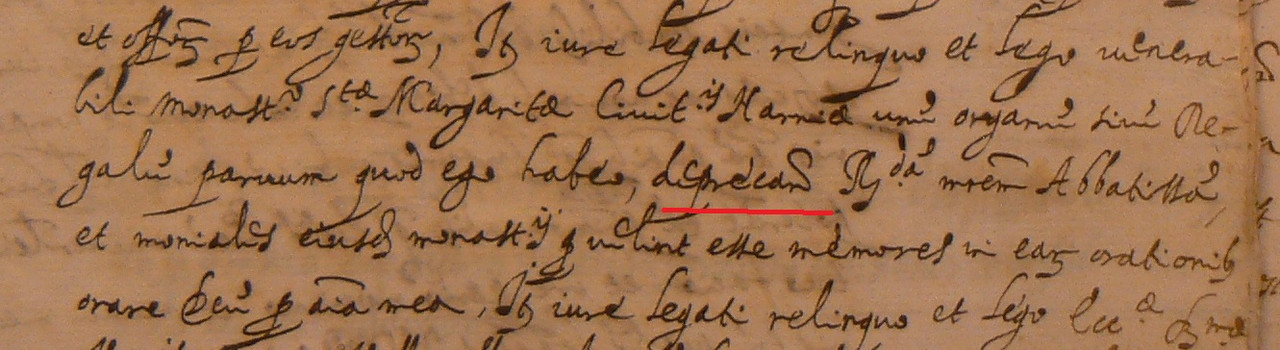 et p eos gestoꝝ, Itꝫ iure legati relinquo et lego venera-
bili monastʳᵒ Sᵗᵃᵉ Margaritæ Civitⁱˢ unũ organũ sivũ Re-
galũ parvum quod ego habeo, deprecanᵈ Rᵈᵃ̃ mrẽm Abbatissã,
et monialẽs eiusᵈ monastⁱʲ velint esse memores in eaꝝ orationibꝫ
orare Deũ p aĩa mea, Itꝫ iure legati relinquo et lego